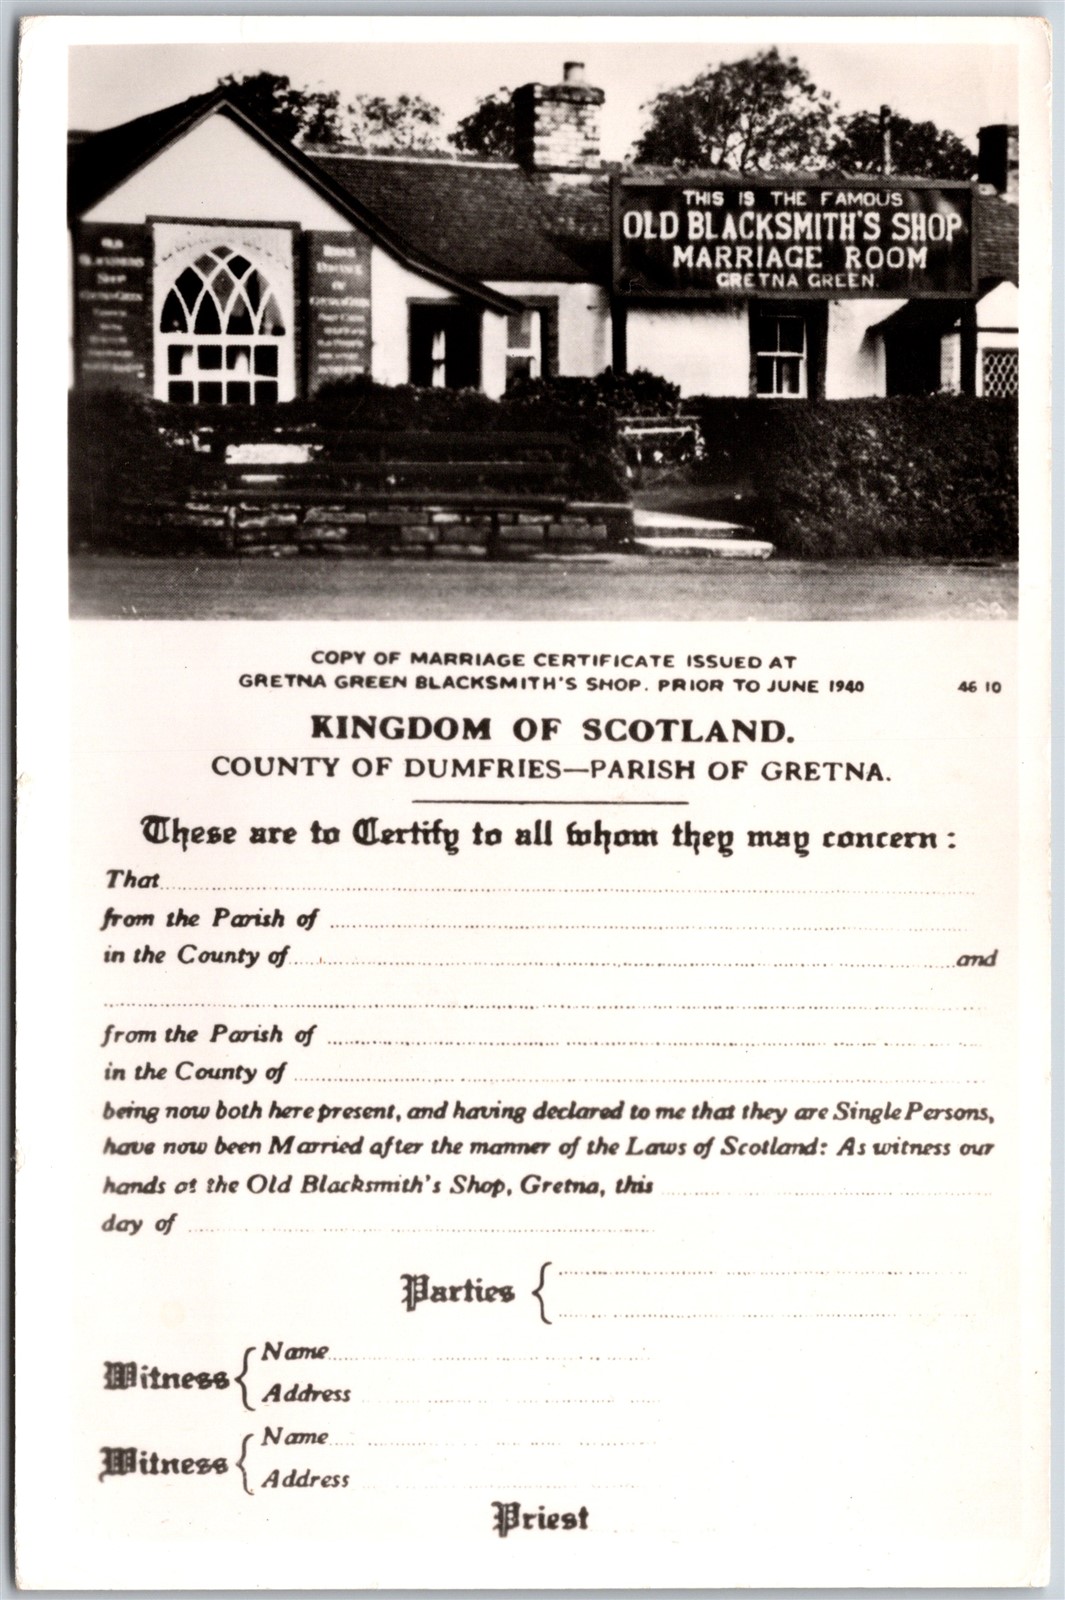 THIS IS THE FAMOUS
OLD BLACKSMITH'S SHOP
MARRIAGE ROOM
GRETNA GREEN.
OLD
BLACKSMITHS
SHOP
GRETNA GREEN
COPY OF MARRIAGE CERTIFICATE ISSUED AT
GRETNA GREEN BLACKSMITH'S SHOP. PRIOR TO JUNE 1940
46 10
KINGDOM OF SCOTLAND.
COUNTY OF DUMFRIES—PARISH OF GRETNA.
These are to Certify to all whom they may concern :
That
from the Parish of
in the County of and
from the Parish of
in the County of
being now both here present, and having declared to me that they are Single Persons,
have now been Married after the manner of the Laws of Scotland: As witness our
hands at the Old Blacksmith's Shop, Gretna, this
day of
Parties
Witness
Name
Address
Witness
Name
Address
Priest